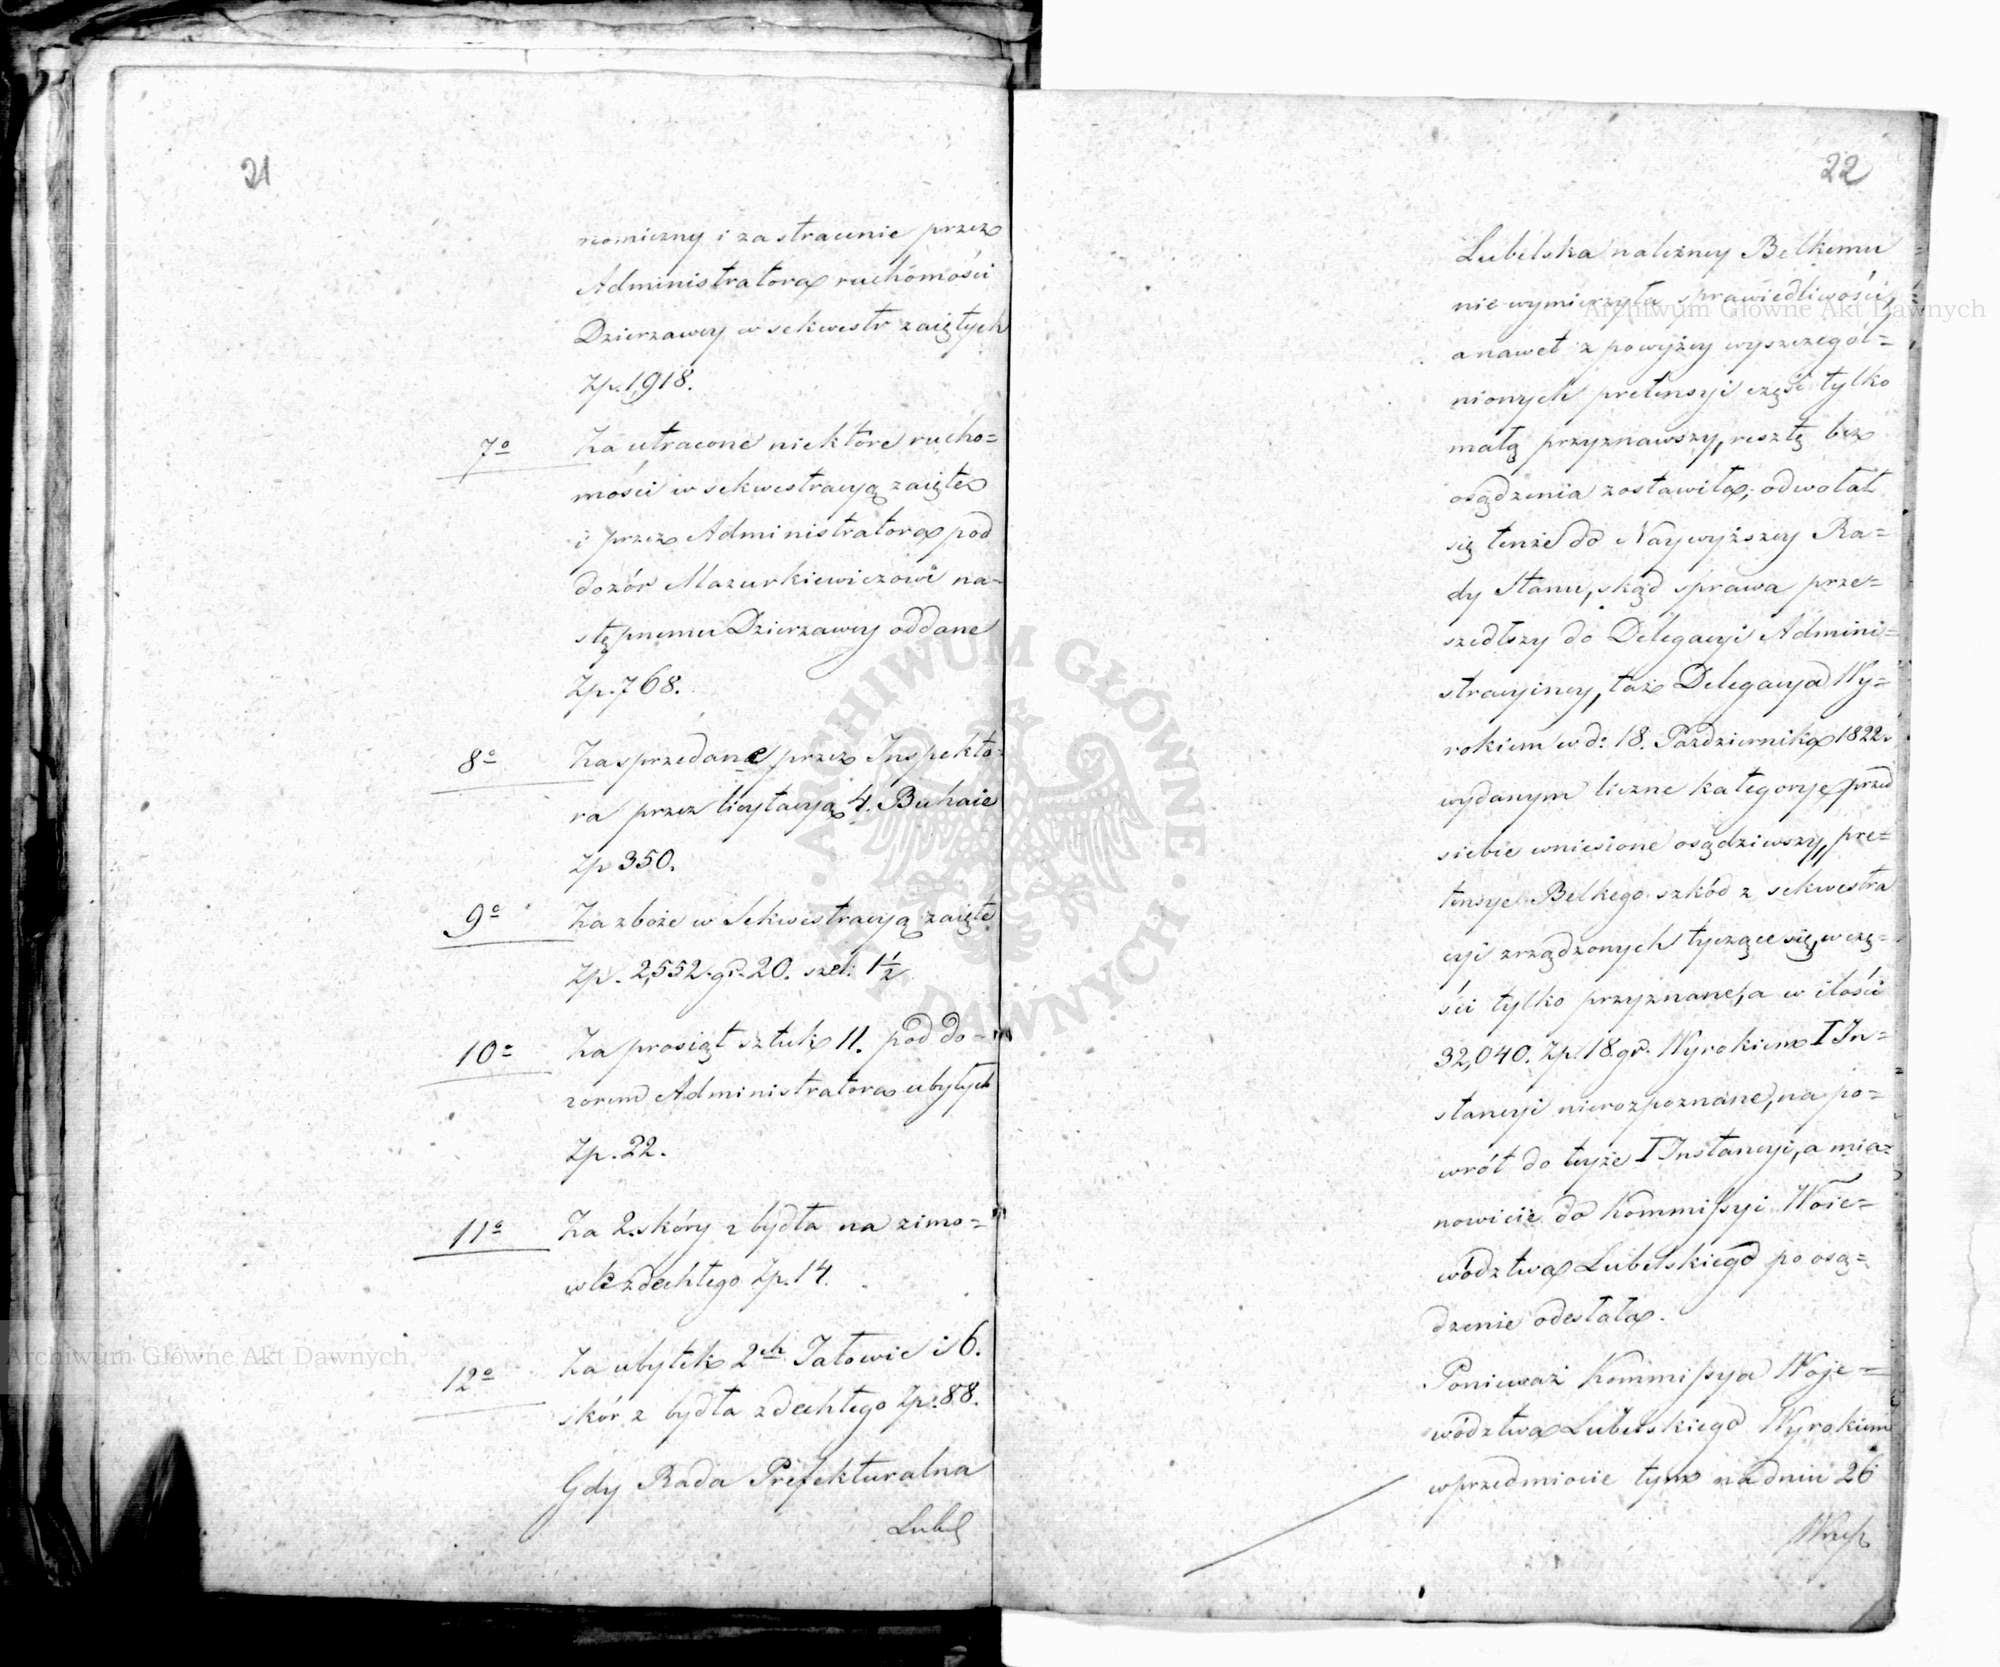 21
nomiczny i za stracenie przez
Administratora ruchomości
Dzierzawcy w sekwestr zaiętych
Zp. 1,918.
7o Za utracone niektóre rucho=
mości w sekwestracyą zaięte
i przez Administratora pod
dozór Mazurkiewiczowi na-
stępnemu Dzierzawcy oddane
Zp. 768.
8o Za sprzedane przez Inspekto-
ra przez licytacyą 4. Buhaie
Zp 350.
9o Za zboże w Sekwestracyą zaięte
Zp. 2,552. gr. 20. szel: 1 1/2
10o Za prosiąt sztuk 11. pod do-
zorem Administratora ubytych
Zp. 22.
11o Za 2. skóry z bydła na zimo=
wlezdechłego Zp. 14.
12o Za ubytek 2ch Jałowic i 6.
skór z bydła zdechłego Zp. 88.
Gdy Rada Prefekturalna
Lubel
22
Lubelska należney Belkemu
nie wymierzyła sprawiedliwości,
a nawet z powyżey wyszczegól=
nionych pretensyi część tylko
małą przyznawszy, resztę bez
osądzenia zostawiła, odwołał
się tenże do Naywyższey Ra=
dy Stanu, skąd sprawa prze=
szedłszy do Delegacyi Admini=
stracyiney, taż Delegacya Wy=
rokiem w d: 18. Października 1822.
wydanym liczne kategorye przed
siebie wniesione osądziwszy, pre=
tensye Belkego szkód z sekwestra
cyi zrządzonych tyczące się, w czę=
ści tylko przyznane, a w ilości
32,040. Zp. 18 gr. Wyrokiem I In=
stancyi nierozpoznane, na po=
wrót do teyże I Instancyi, a mia=
nowicie do Kommissyi Woie=
wództwa Lubelskiego po osą=
dzenie odesłała.
Ponieważ Kommissya Woje=
wództwa Lubelskiego Wyrokiem
w przedmiocie tym na dniu 26
Wrześ
Archiwum Główne Akt Dawnych
Archiwum Główne Akt Dawnych
ARCHIWUM GŁÓWNE AKT DAWNYCH